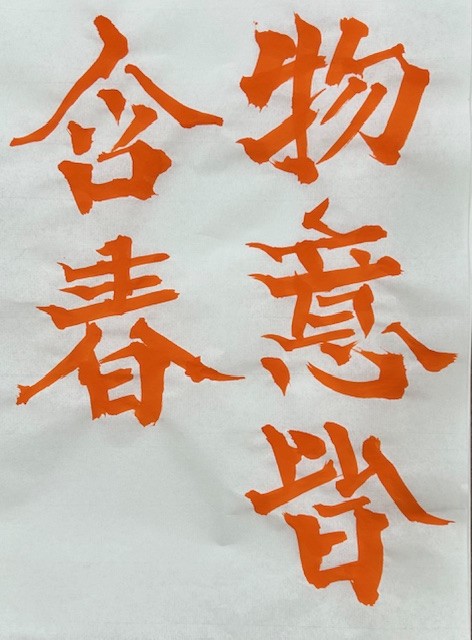 物意皆
含春